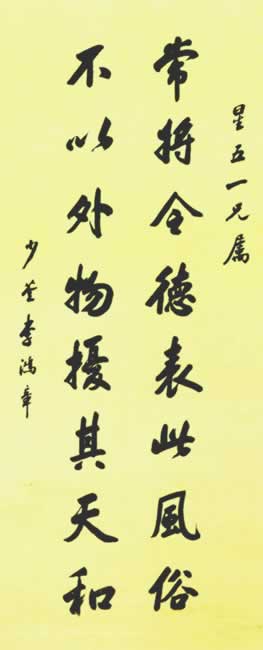 星五一兄属
常将全德表此風俗
不以外物擾其天和
少荃李鴻章